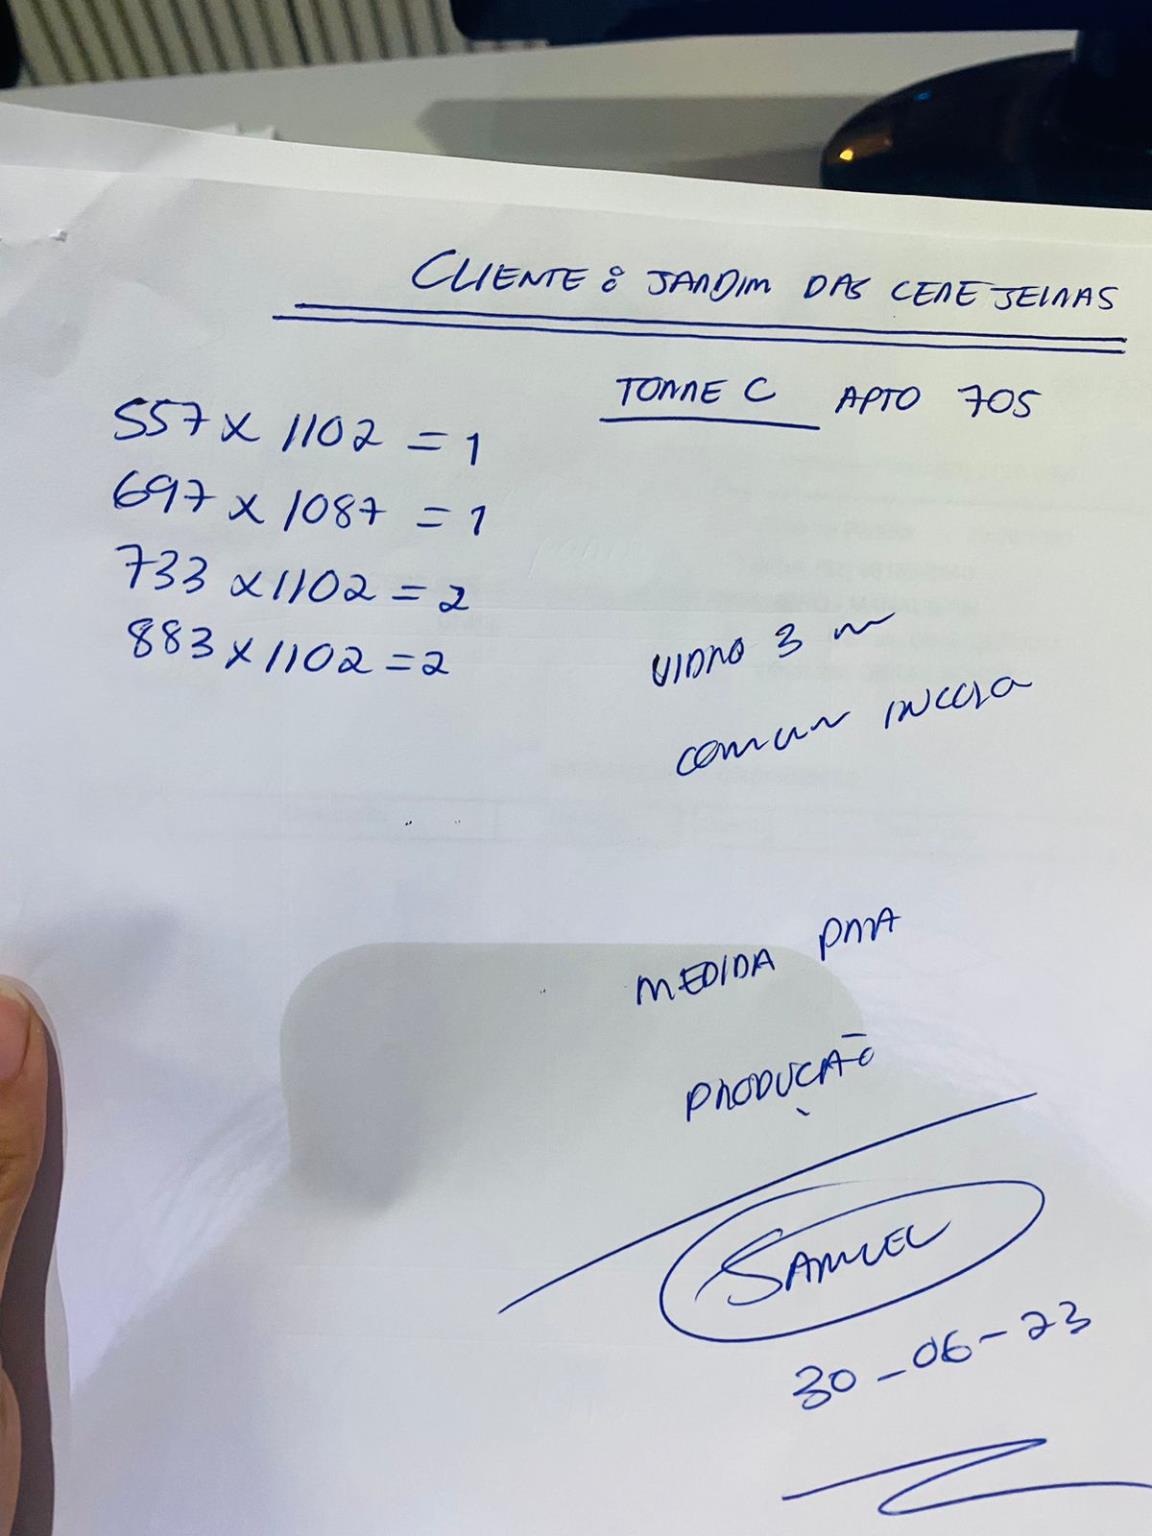 CLIENTE: JARDIM DAS CEREJEIRAS
TORRE C APTO 705
557 x 1102 = 1
697 x 1087 = 1
733 x 1102 = 2
883 x 1102 = 2
VIDRO 3 m
comum INCOLO
MEDIDA PRA
PRODUÇÃO
SAMUEL
30-06-23